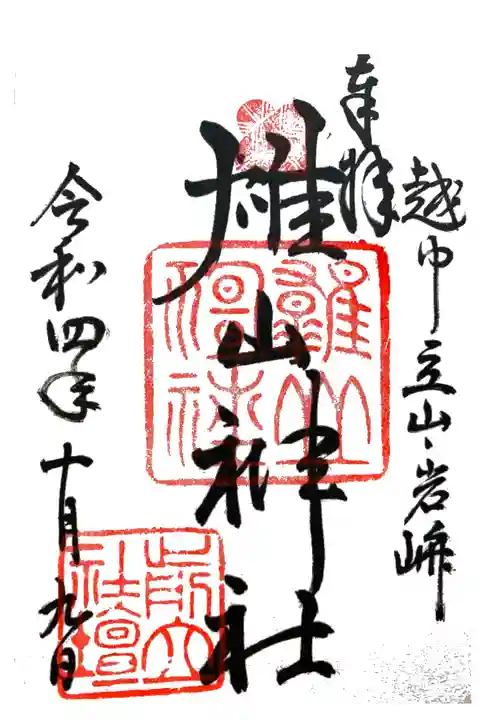 奉拝
越中立山岩峅
雄山神社
雄山神社
令和四年十月九日